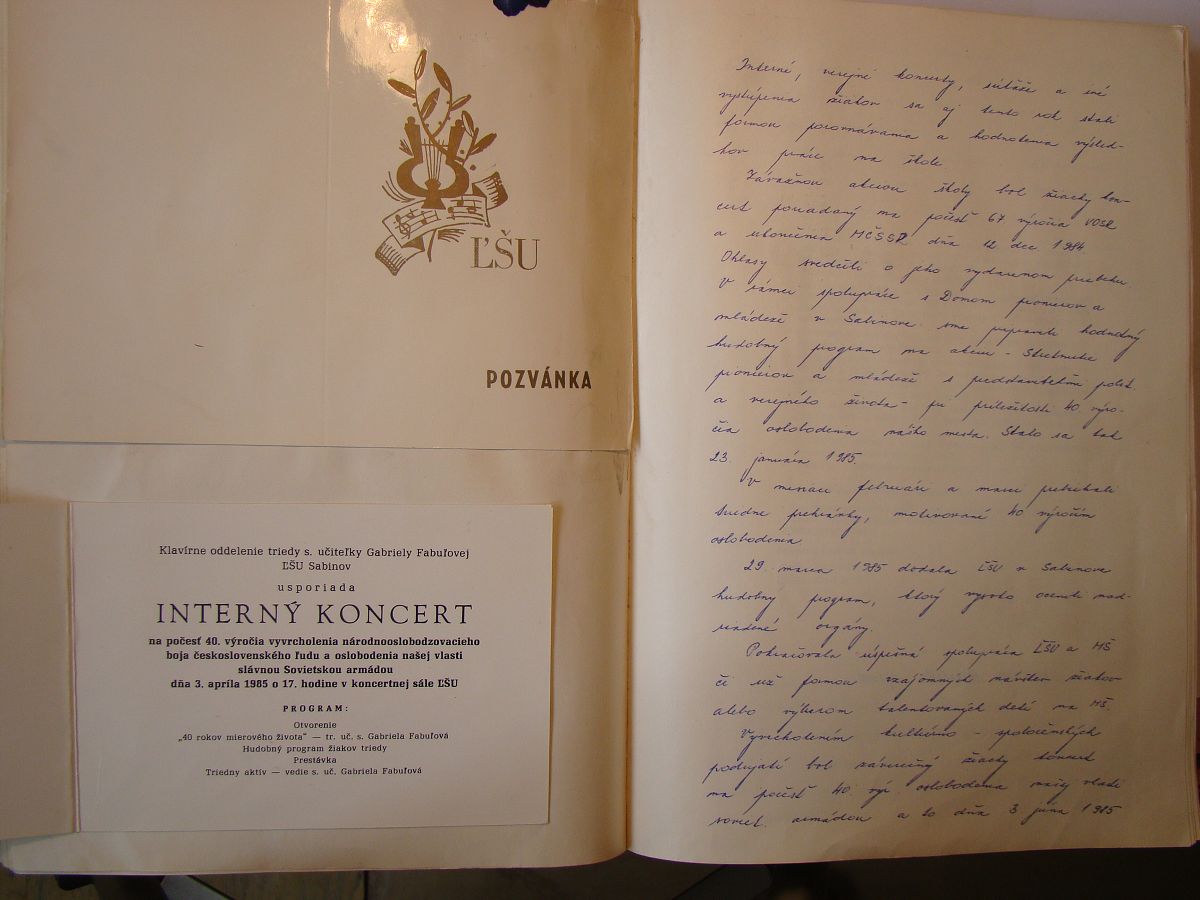 ĽŠU
POZVÁNKA
Klavírne oddelenie triedy s. učiteľky Gabriely Fabuľovej
ĽŠU Sabinov
usporiada
INTERNÝ KONCERT
na počesť 40. výročia vyvrcholenia národnooslobodzovacieho
boja československého ľudu a oslobodenia našej vlasti
slávnou Sovietskou armádou
dňa 3. apríla 1985 o 17. hodine v koncertnej sále ĽŠU
PROGRAM:
Otvorenie
„40 rokov mierového života" — tr. uč. s. Gabriela Fabuľová
Hudobný program žiakov triedy
Prestávka
Triedny aktív — vedie s. uč. Gabriela Fabuľová
Interné, verejné koncerty, súťaže a iné
vystúpenia žiakov sa aj tento rok stali
formou porovnávania a hodnotenia výsled-
kov práce na škole
Závažnou akciou školy bol žiacky kon-
cert poriadaný na počesť 67. výročia VOSR
a ukončenia MČSSP dňa 12 dec. 1984.
Ohlasy svedčili o jeho vydarenom priebehu.
V rámci spolupráce s Domom pionierov a
mládeže v Sabinove sme pripravili hodnotný
hudobný program na akciu - Stretnutie
pionierov a mládeže s predstaviteľmi polit
a verejného života - pri príležitosti 40. výro-
čia oslobodenia nášho mesta. Stalo sa tak
23. januára 1985.
V mesiaci februári a marci prebiehali
triedne prehrávky, motivované 40 výročím
oslobodenia.
29. marca 1985 dodala ĽŠU v Sabinove
hudobný program, ktorý vysoko ocenili nad-
riadené orgány.
Pokračovala úspešná spolupráca ĽŠU a MŠ
či už formou vzájomných návštev žiakov
alebo výberom talentovaných detí na MŠ.
Vyvrcholením kultúrno - spoločenských
podujatí bol záverečný žiacky koncert
na počesť 40. výr. oslobodenia našej vlasti
soviet. armádou a to dňa 3. júna 1985